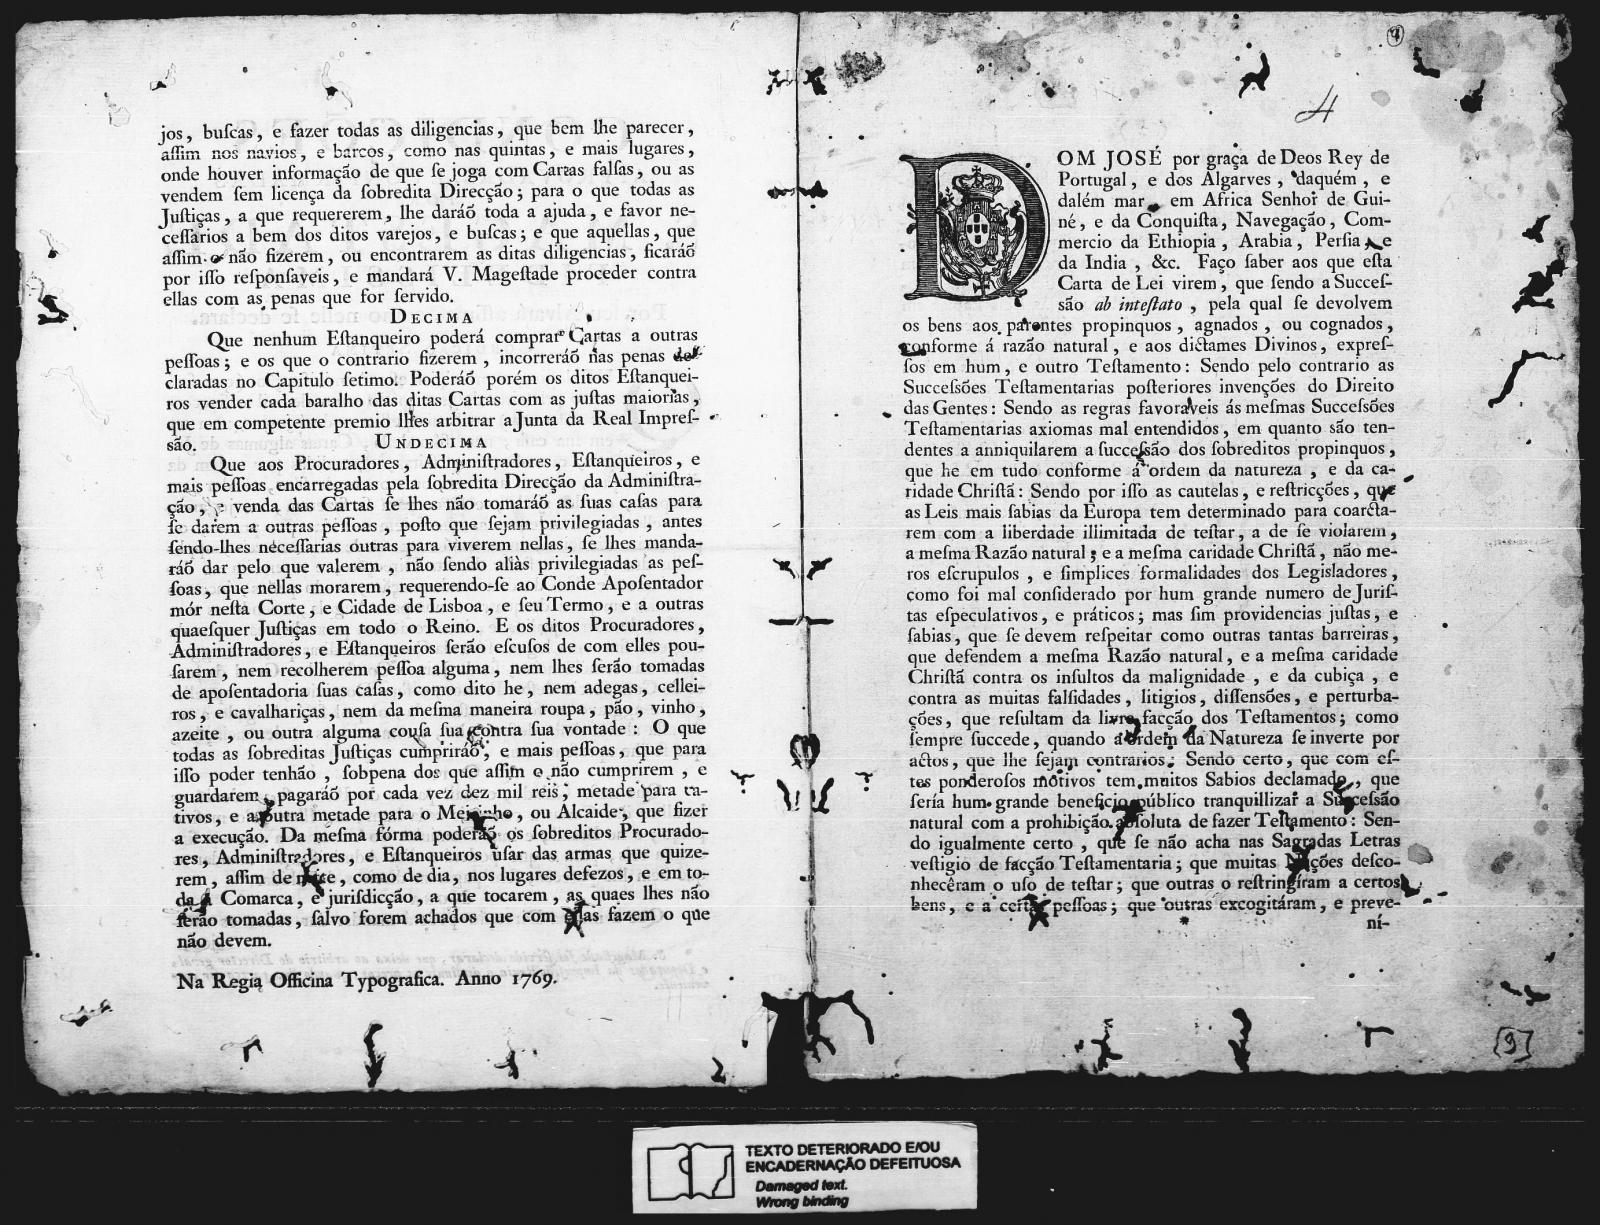 jos, buſcas, e fazer todas as diligencias, que bem lhe parecer,
aſſim nos navios, e barcos, como nas quintas, e mais lugares,
onde houver informação de que ſe joga com Cartas falſas, ou as
vendem ſem licença da ſobredita Direcção; para o que todas as
Juſtiças, a que requererem, lhe daráõ toda a ajuda, e favor ne-
ceſſarios a bem dos ditos varejos, e buſcas; e que aquellas, que
aſſim o não fizerem, ou encontrarem as ditas diligencias, ficaráõ
por iſſo reſponſaveis, e mandará V. Mageſtade proceder contra
ellas com as penas que for ſervido.
DECIMA
Que nenhum Eſtanqueiro poderá comprar Cartas a outras
peſſoas; e os que o contrario fizerem, incorreráõ nas penas de-
claradas no Capitulo ſetimo. Poderáõ porém os ditos Eſtanquei-
ros vender cada baralho das ditas Cartas com as juſtas maiorias,
que em competente premio lhes arbitrar a Junta da Real Impreſ-
são.
UNDECIMA
Que aos Procuradores, Adminiſtradores, Eſtanqueiros, e
mais peſſoas encarregadas pela ſobredita Direcção da Adminiſtra-
ção, e venda das Cartas ſe lhes não tomaráõ as ſuas caſas para
ſe darem a outras peſſoas, poſto que ſejam privilegiadas, antes
ſendo-lhes neceſſarias outras para viverem nellas, ſe lhes manda-
ráõ dar pelo que valerem, não ſendo aliàs privilegiadas as peſ-
ſoas, que nellas morarem, requerendo-ſe ao Conde Apoſentador
mór neſta Corte, e Cidade de Lisboa, e ſeu Termo, e a outras
quaeſquer Juſtiças em todo o Reino. E os ditos Procuradores,
Adminiſtradores, e Eſtanqueiros ſerão eſcuſos de com elles pou-
ſarem, nem recolherem peſſoa alguma, nem lhes ſerão tomadas
de apoſentadoria ſuas caſas, como dito he, nem adegas, cellei-
ros, e cavalhariças, nem da meſma maneira roupa, pão, vinho,
azeite, ou outra alguma couſa ſua contra ſua vontade: O que
todas as ſobreditas Juſtiças cumpriráõ, e mais peſſoas, que para
iſſo poder tenhão, ſobpena dos que aſſim o não cumprirem, e
guardarem, pagaráõ por cada vez dez mil reis; metade para ca-
tivos, e a outra metade para o Meirinho, ou Alcaide, que fizer
a execução. Da meſma fórma poderáõ os ſobreditos Procurado-
res, Adminiſtradores, e Eſtanqueiros uſar das armas que quize-
rem, aſſim de noite, como de dia, nos lugares defezos, e em to-
da a Comarca, e juriſdicção, a que tocarem, as quaes lhes não
ſerão tomadas, ſalvo forem achados que com ellas fazem o que
não devem.
Na Regia Officina Typografica. Anno 1769.
4
DOM JOSÉ por graça de Deos Rey de
Portugal, e dos Algarves, daquém, e
dalém mar, em Africa Senhor de Gui-
né, e da Conquiſta, Navegação, Com-
mercio da Ethiopia, Arabia, Perſia, e
da India, &c. Faço ſaber aos que eſta
Carta de Lei virem, que ſendo a Succeſ-
são ab inteſtato, pela qual ſe devolvem
os bens aos parentes propinquos, agnados, ou cognados,
conforme á razão natural, e aos dictames Divinos, expreſ-
ſos em hum, e outro Teſtamento: Sendo pelo contrario as
Succeſsões Teſtamentarias poſteriores invenções do Direito
das Gentes: Sendo as regras favoraveis ás meſmas Succeſsões
Teſtamentarias axiomas mal entendidos, em quanto são ten-
dentes a anniquilarem a ſucceſsão dos ſobreditos propinquos,
que he em tudo conforme á ordem da natureza, e da ca-
ridade Chriſtã: Sendo por iſſo as cautelas, e reſtricções, que
as Leis mais ſabias da Europa tem determinado para coarcta-
rem com a liberdade illimitada de teſtar, a de ſe violarem,
a meſma Razão natural; e a meſma caridade Chriſtã, não me-
ros eſcrupulos, e ſimplices formalidades dos Legisladores,
como foi mal conſiderado por hum grande numero de Juriſ-
tas eſpeculativos, e práticos; mas ſim providencias juſtas, e
ſabias, que ſe devem reſpeitar como outras tantas barreiras,
que defendem a meſma Razão natural, e a meſma caridade
Chriſtã contra os inſultos da malignidade, e da cubiça, e
contra as muitas falſidades, litigios, diſſensões, e perturba-
ções, que reſultam da livre facção dos Teſtamentos; como
ſempre ſuccede, quando a ordem da Natureza ſe inverte por
actos, que lhe ſejam contrarios: Sendo certo, que com eſ-
tes ponderoſos motivos tem muitos Sabios declamado, que
ſería hum grande beneficio público tranquillizar a Succeſsão
natural com a prohibição abſoluta de fazer Teſtamento: Sen-
do igualmente certo, que ſe não acha nas Sagradas Letras
veſtigio de facção Teſtamentaria; que muitas Nações deſco-
nhecêram o uſo de teſtar; que outras o reſtringíram a certos
bens, e a certas peſſoas; que outras excogitáram, e preve-
ní-
[9]
TEXTO DETERIORADO E/OU
ENCADERNAÇÃO DEFEITUOSA
Damaged text.
Wrong binding